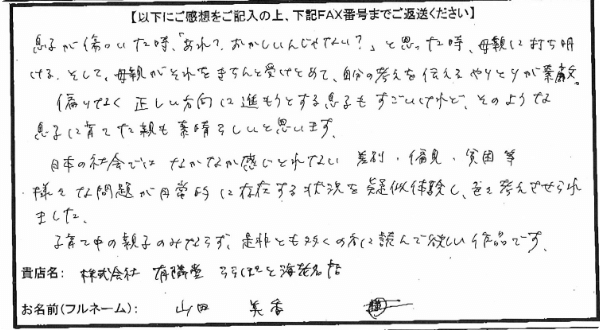 【以下にご感想をご記入の上、下記FAX番号までご返送ください】
息子が傷ついた時、「あれ？おかしいんじゃない？」と思った時、母親に打ち明
ける。そして、母親がそれをきちんと受けとめて、自分の考えを伝えるやりとりが素敵。
偏りなく正しい方向に進もうとする息子もすごいけれど、そのような
息子に育てた親も素晴らしいと思います。
日本の社会ではなかなか感じとれない差別・偏見・貧困等
様々な問題が日常的に存在する状況を疑似体験し、色々考えさせられ
ました。
子育て中の親子のみならず、是非とも多くの方に読んで欲しい作品です。
貴店名： 株式会社 有隣堂 ららぽーと海老名店
お名前(フルネーム)： 山田 美香